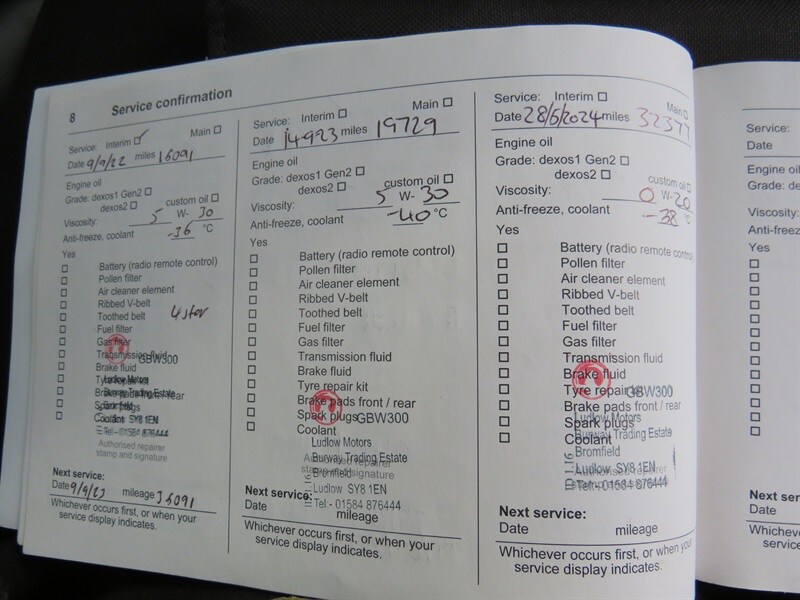 8 Service confirmation
Service: Interim ☑ Main ☐
Date 9/9/22 miles 16091
Engine oil
Grade: dexos1 Gen2 ☐
dexos2 ☐ custom oil ☐
Viscosity: 5 W- 30
Anti-freeze, coolant -36 °C
Yes
☐ Battery (radio remote control)
☐ Pollen filter
☐ Air cleaner element
☐ Ribbed V-belt
☐ Toothed belt 4 star
☐ Fuel filter
☐ Gas filter
☐ Transmission fluid GBW300
☐ Brake fluid
☐ Tyre repair kit
☐ Brake pads front / rear
☐ Spark plugs
☐ Coolant
Ludlow Motors
Burway Trading Estate
Bromfield
Ludlow SY8 1EN
Tel:- 01584 876444
Authorised repairer
stamp and signature
Next service:
Date 9/9/23 mileage
Whichever occurs first, or when your
service display indicates.
Service: Interim ☐ Main ☐
Date 14923 miles 19729
Engine oil
Grade: dexos1 Gen2 ☐
dexos2 ☐ custom oil ☐
Viscosity: 5 W- 30
Anti-freeze, coolant -40 °C
Yes
☐ Battery (radio remote control)
☐ Pollen filter
☐ Air cleaner element
☐ Ribbed V-belt
☐ Toothed belt
☐ Fuel filter
☐ Gas filter
☐ Transmission fluid
☐ Brake fluid
☐ Tyre repair kit
☐ Brake pads front / rear
☐ Spark plugs GBW300
☐ Coolant
Ludlow Motors
Burway Trading Estate
Authorised repairer
stamp and signature
Bromfield
Ludlow SY8 1EN
Tel:- 01584 876444
Next service:
Date mileage
Whichever occurs first, or when your
service display indicates.
Service: Interim ☐ Main ☐
Date 28/6/2024 miles
Engine oil
Grade: dexos1 Gen2 ☐
dexos2 ☐ custom oil ☐
Viscosity: 0 W- 20
Anti-freeze, coolant -38 °C
Yes
☐ Battery (radio remote control)
☐ Pollen filter
☐ Air cleaner element
☐ Ribbed V-belt
☐ Toothed belt
☐ Fuel filter
☐ Gas filter
☐ Transmission fluid
☐ Brake fluid
☐ Tyre repair kit GBW300
☐ Brake pads front / rear
☐ Spark plugs
☐ Coolant
Ludlow Motors
Burway Trading Estate
Bromfield
Authorised repairer
Ludlow SY8 1EN
Tel:- 01584 876444
Next service:
Date mileage
Whichever occurs first, or when your
service display indicates.
Service:
Date
Engine oil
Grade:
Viscosity:
Anti-freeze
Yes
Next
Date
Whichever
service